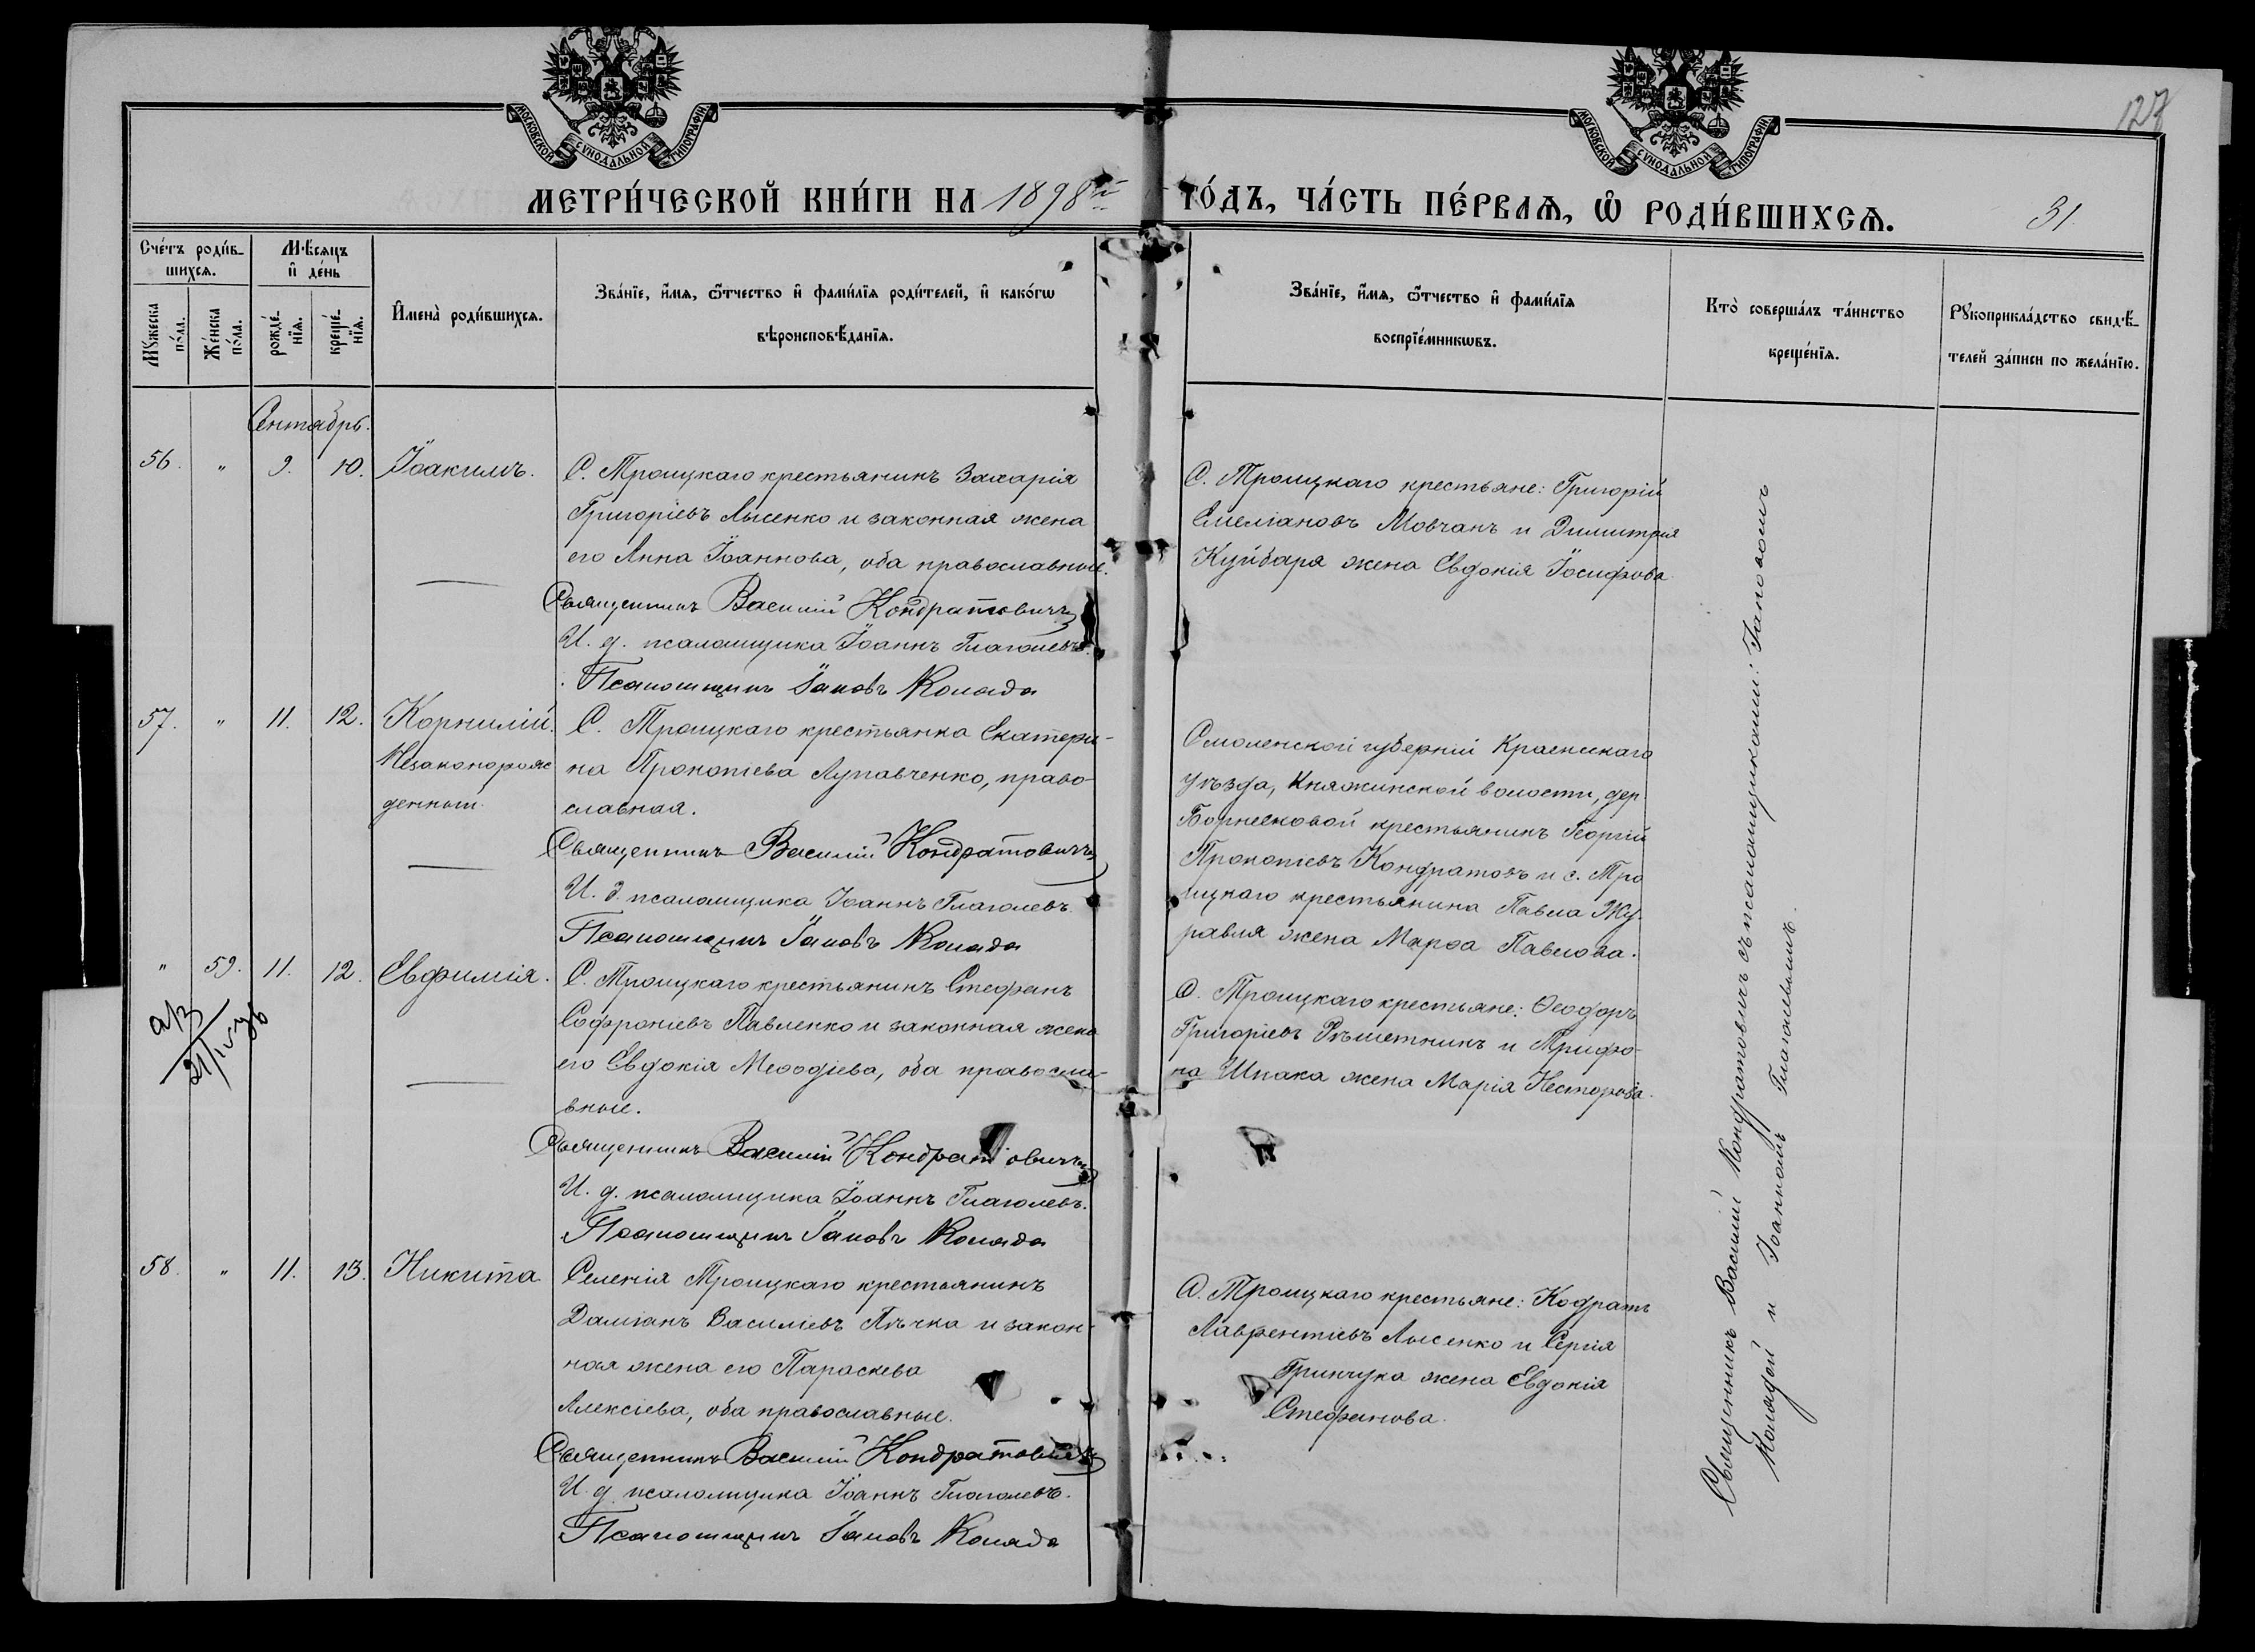 МОСКОВСКОЙ СѴНОДАЛЬНОЙ ТИПОГРАФІИ
МОСКОВСКОЙ СѴНОДАЛЬНОЙ ТИПОГРАФІИ
127
МЕТРИ́ЧЕСКОЙ КНИ́ГИ НА 1898й ГО́ДЪ, ЧА́СТЬ ПЕ́РВАѦ, Ѡ҆ РОДИ́ВШИХСѦ.
31
Сче́тъ роди́в-
шихсѧ.
Мꙋ́жеска
по́ла.
Же́нска
по́ла.
Мѣ́сѧцъ
и҆ де́нь
рожде́-
нїѧ.
креще́-
нїѧ.
И҆мена̀ роди́вшихсѧ.
Зва́нїе, и҆́мѧ, ѻ҆́тчество и҆ фами́лїѧ роди́телей, и҆ како́гѡ
вѣроисповѣ́данїѧ.
Зва́нїе, и҆́мѧ, ѻ҆́тчество и҆ фами́лїѧ
воспрїе́мникѡвъ.
Кто̀ соверша́лъ та́инство
креще́нїѧ.
Рꙋкоприкла́дство свидѣ́-
телей за́писи по жела́нїю.
Сентябрь.
56. " 9. 10. Іоакимъ.
С. Троицкаго крестьянинъ Захарія
Григоріевъ Лысенко и законная жена
его Анна Іоаннова, оба православные.
Священникъ Василій Кондратовичъ
И. д. псаломщика Іоаннъ Глаголевъ.
Псаломщикъ Іаковъ Коляда
С. Троицкаго крестьяне: Григорій
Емеліановъ Мовчанъ и Димитрія
Куйбаря жена Евдокія Іосифова
57. " 11. 12. Корнилій.
Незаконорож
денный.
С. Троицкаго крестьянка Екатери-
на Прокопіева Лупавченко, право-
славная.
Священникъ Василій Кондратовичъ
И. д. псаломщика Іоаннъ Глаголевъ.
Псаломщикъ Іаковъ Коляда
Смоленской губерніи Краснискаго
уѣзда, Княжинской волости, дер.
крестьянинъ Георгій
Прокопіевъ Кондратовъ и с. Тро
ицкаго крестьянина Павла Жу-
равля жена Марѳа Павлова.
" 59. 11. 12. Евфимія.
21/IV
С. Троицкаго крестьянинъ Стефанъ
Софроніевъ Павленко и законная жена
его Евдокія Меѳодіева, оба правосла-
вные.
Священникъ Василій Кондратовичъ
И. д. псаломщика Іоаннъ Глаголевъ.
Псаломщикъ Іаковъ Коляда
С. Троицкаго крестьяне: Ѳеодоръ
Григоріевъ Рѣшетникъ и Трифо-
на Шпака жена Марія Несторова.
58. " 11. 13. Никита
Селенія Троицкаго крестьянинъ
Даміанъ Василіевъ Пѣчка и закон-
ная жена его Параскева
Алексіева, оба православные.
Священникъ Василій Кондратовичъ
И. д. псаломщика Іоаннъ Глаголевъ.
Псаломщикъ Іаковъ Коляда
С. Троицкаго крестьяне: Кодратъ
Лаврентіевъ Лысенко и Сергія
Гринчука жена Евдокія
Стефанова.
Священникъ Василій Кондратовичъ съ псаломщиками: Іаковомъ
Колядой и Іоанномъ Глаголевымъ.